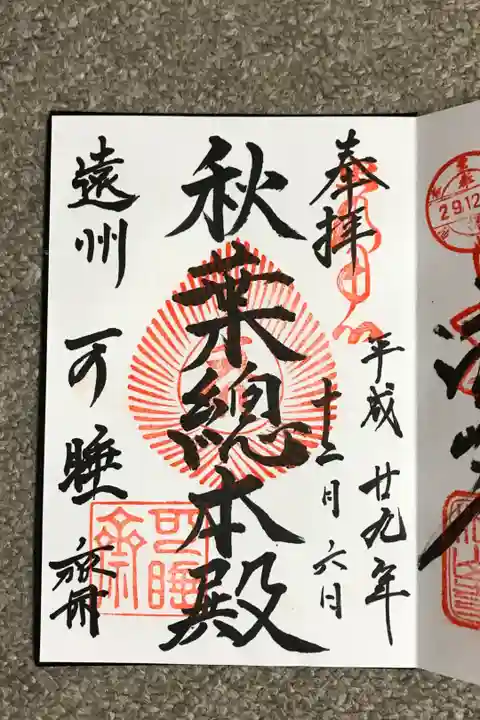 奉拝
平成廿九年
十二月六日
秋葉總本殿
遠州 可睡齋
可睡
齋
29.12